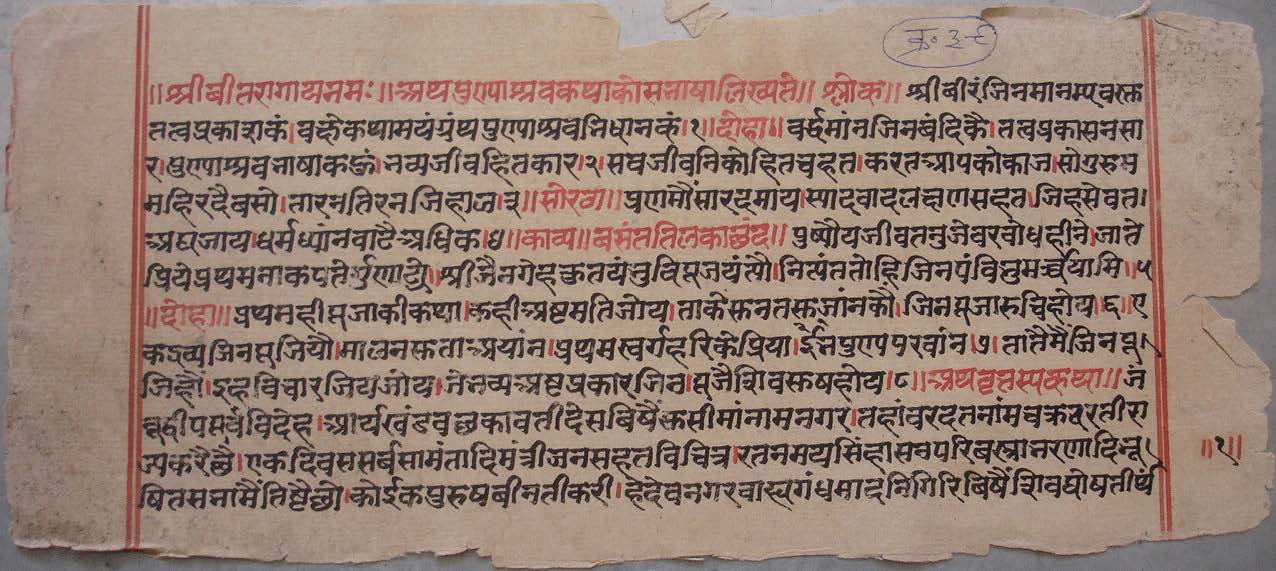 क्र॰ ३-६
॥श्रीवीतरागायनमः॥अथपुण्याश्रवकथाकोसभाषालिख्यते॥श्लोक॥श्रीवीरंजिनमानम्यवस्तु
तत्वप्रकाशकं।वक्ष्येकथामयंग्रंथपुण्याश्रवभिधानकं।१॥दोहा॥वर्द्धमांनजिनबंदिकै।तत्वप्रकासनसा
र।पुण्याश्रवभाषाकरूं।भव्यजीवहितकार।२सबजीवनिकोहितचहत।करतआपकोकाज।सोगुरुमु
महिरदैबसो।तारनतिरनजिहाज।३॥सोरठा॥प्रणमौंसारदमाय।स्यादवादलक्षणसहत।जिहसेवत।
अघजाय।धर्मध्यांनवाढैअधिक।४॥काव्य॥बसंततिलकाछंद॥
॥दोहा॥प्रथमहीपूजाकीकथा।कहीअष्टमतिजोय।ताकेसुनतसुजांनकौ।जिनपूजारुचिहोय।६।ए
कद्रव्यजिनपूजियौ।मालनसुताअयांन।प्रथमस्वर्गहरिकेप्रिया।ईनपुण्यपरवांन।७।तातैमैंजिनपू।
जिहौ।इहविचारजियजोय।जेभव्यअष्टप्रकारजिन।पूजैशिवसुषहोय।८॥अथवृतस्यकथा॥जं
बूद्वीपपूर्वविदेह।आर्यखंडवछकावतीदेसबिषैंसुसीमांनामनगर।तहांवरदतनांमचक्रवरतीरा
ज्यकरैछै।एकदिवससर्बसामंतादिमंत्रीजनसहतविचित्र।रतनमयसिंहासनपरिबस्त्राभरणादिभू।
षितसभामैंतिष्टैछो।कोईकपुरुषबीनतीकरी।हेदेवनगरबाह्यगंधमादनगिरिबिषैंशिवघोषतीर्थं
॥१॥